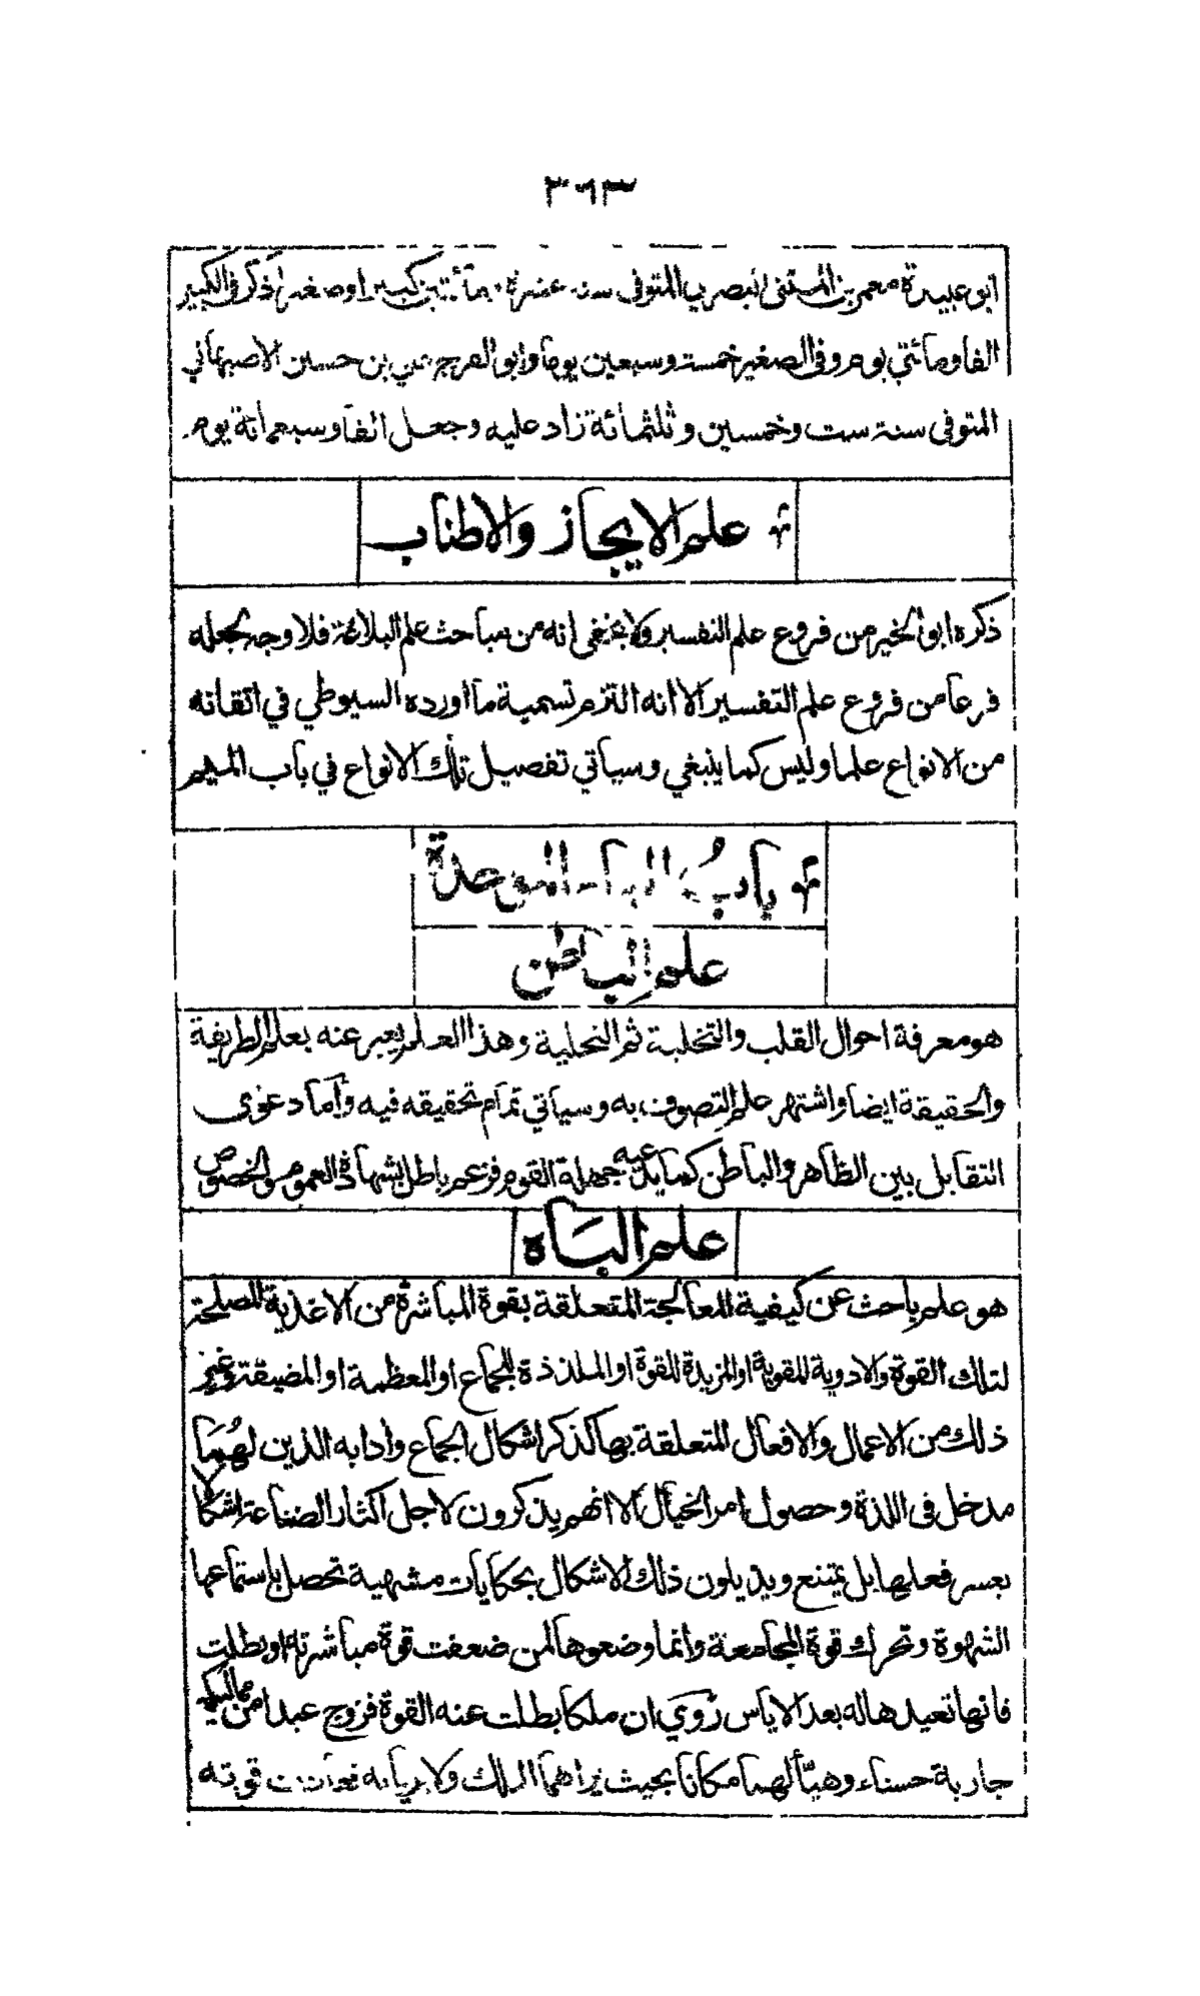 ٣٦٣
ابو عبيدة معمر بن المثنى البصري المتوفى سنة عشرة ومائتين كبيرا وصغيرا ذكر في الكبير
الفا ومائتي يوم وفي الصغير خمسة وسبعين يوما وابو الفرج علي بن حسين الاصبهاني
المتوفى سنة ست وخمسين وثلثمائة زاد عليه وجعل الفا وسبعمائة يوم
علم الايجاز والاطناب
ذكره ابو الخير من فروع علم التفسير ولا يخفى انه من مباحث علم البلاغة فلا وجه لجعله
فرعا من فروع علم التفسير الا انه التزم تسمية ما اورده السيوطي في اتقانه
من الانواع علما وليس كما ينبغي وسيأتي تفصيل تلك الانواع في باب الميم
باب الباء الموحدة
علم الباطن
هو معرفة احوال القلب والتخلية ثم التحلية وهذا العلم يعبر عنه بعلم الطريقة
والحقيقة ايضا واشتهر علم التصوف به وسيأتي تمام تحقيقه فيه وأما دعوى
التقابل بين الظاهر والباطن كما يدعيه جهلة القوم فزعم باطل بشهادة العموم والخصوص
علم الباه
هو علم باحث عن كيفية المعالجة المتعلقة بقوة المباشرة من الاغذية المصلحة
لتلك القوة والادوية المقوية او المزيدة للقوة او الملذذة للجماع او المعظمة او المضيقة وغير
ذلك من الاعمال والافعال المتعلقة بها كذكر اشكال الجماع وأدابه الذين لهما
مدخل في اللذة وحصول امر الخيال الا انهم يذكرون لاجل اكثار الصناعة اشكالا
يعسر فعلها بل يمتنع ويذيلون ذلك الاشكال بحكايات مشهية تحصل باستماعها
الشهوة وتحرك قوة المجامعة وانما وضعوها لمن ضعفت قوة مباشرته او بطلت
فانها تعيدها له بعد الاياس روي ان ملكا بطلت عنه القوة فزوج عبدا من مماليكه
جارية حسناء وهيأ لهما مكانا بحيث يراهما الملك ولا يريانه فعادت قوته